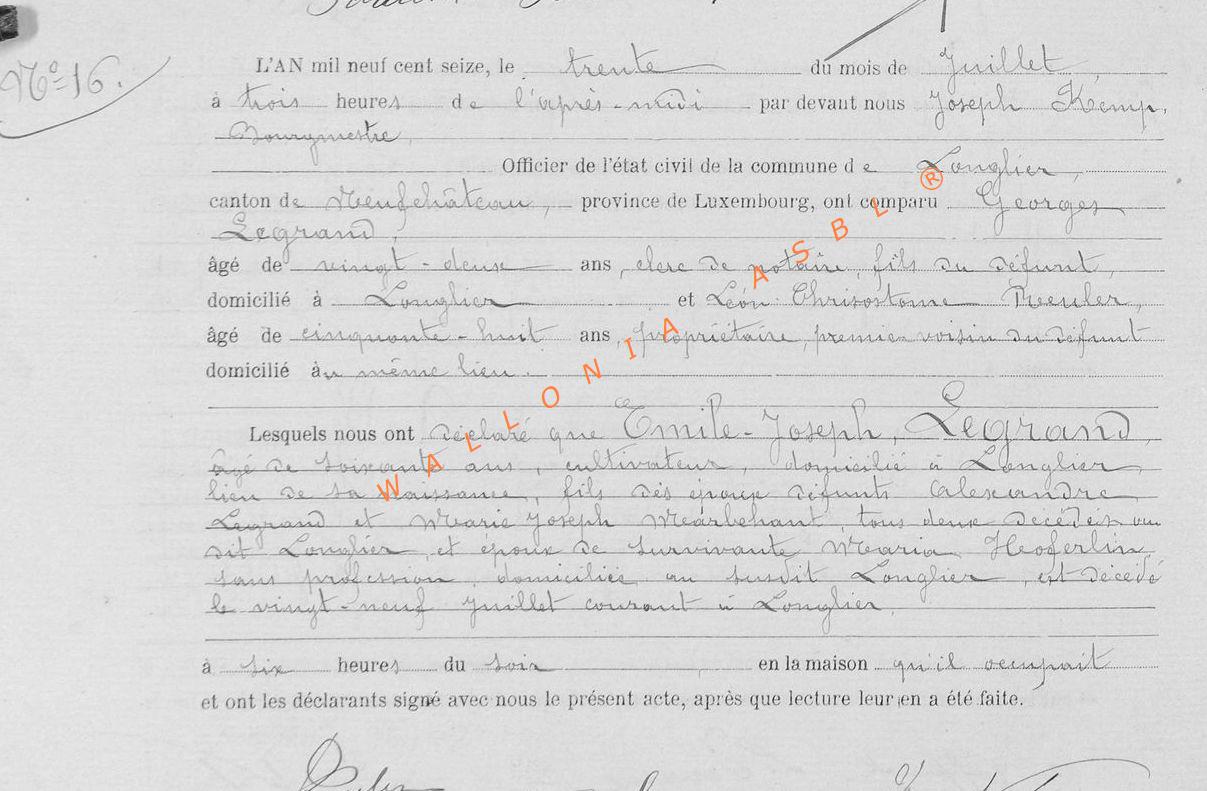 Nº 16.
L'AN mil neuf cent seize, le trente du mois de Juillet,
à trois heures de l'après-midi par devant nous Joseph Kemp,
Bourgmestre,
Officier de l'état civil de la commune de Longlier,
canton de Neufchâteau, province de Luxembourg, ont comparu Georges
Legrand,
âgé de vingt-deux ans, clerc de notaire, fils du défunt,
domicilié à Longlier et Léon Chrisostome
âgé de cinquante-huit ans, propriétaire, premier voisin du défunt
domicilié au même lieu.
Lesquels nous ont déclaré que Emile-Joseph, Legrand,
âgé de soixante ans, cultivateur, domicilié à Longlier,
lieu de sa naissance, fils des époux défunts Alexandre
Legrand et Marie Joseph Mearbehant, tous deux décédés au
dit Longlier, et époux de survivante Maria Heoferlin,
sans profession, domiciliée au susdit Longlier, est décédé
le vingt-neuf Juillet courant à Longlier,
à six heures du soir en la maison qu'il occupait
et ont les déclarants signé avec nous le présent acte, après que lecture leur en a été faite.
WALLONIA ASBL ®